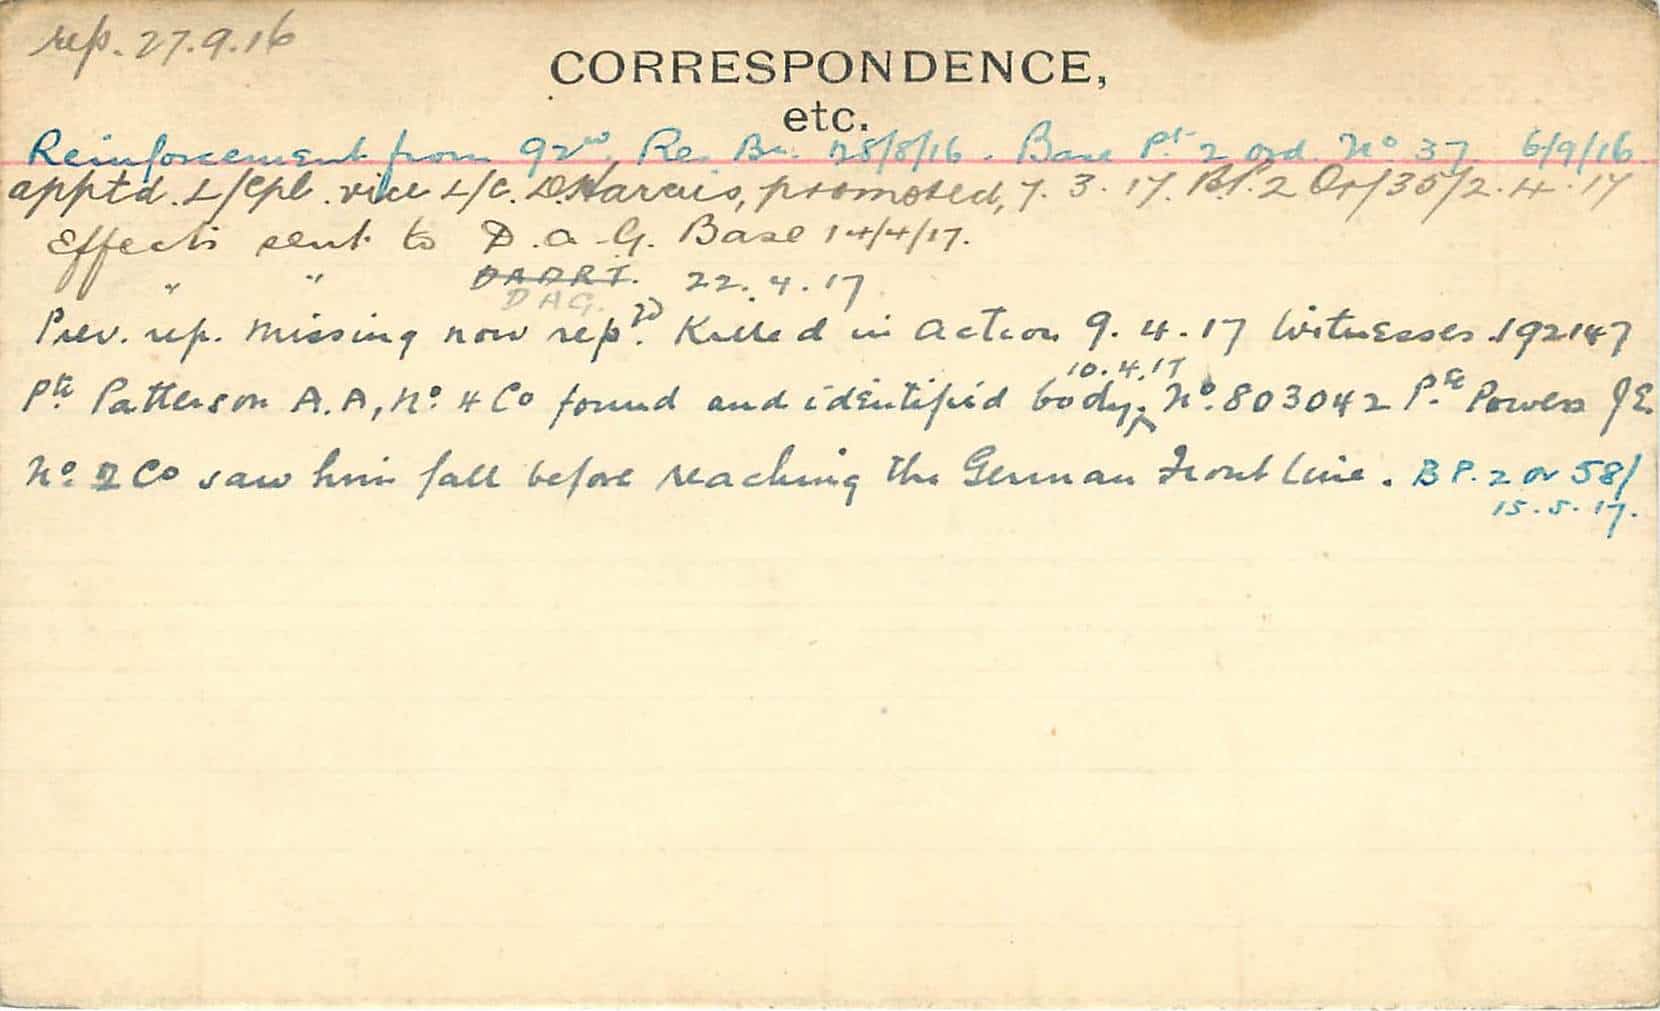 rep. 27.9.16
CORRESPONDENCE,
etc.
Reinforcement from 92nd, Re. Bn. 28/8/16. Base Pt 2 ord. No 37 6/9/16.
apptd. L/Cpl. vice L/C. D. Harcus, promoted, 7.3.17. B.P.2 Or/35/2.4.17
Effects sent to D.A.G. Base 14/4/17.
" " DADRT. 22.4.17
DAG.
Prev. rep. Missing now repd. Killed in action 9.4.17 Witnesses. 192147
10.4.17
Pte Patterson A.A, No. 4 Co found and identifid body, No. 803042 Pte Powers J E.
No. 2 Co saw him fall before reaching the German Front Line. B P. 2 or 58/
15.5.17.